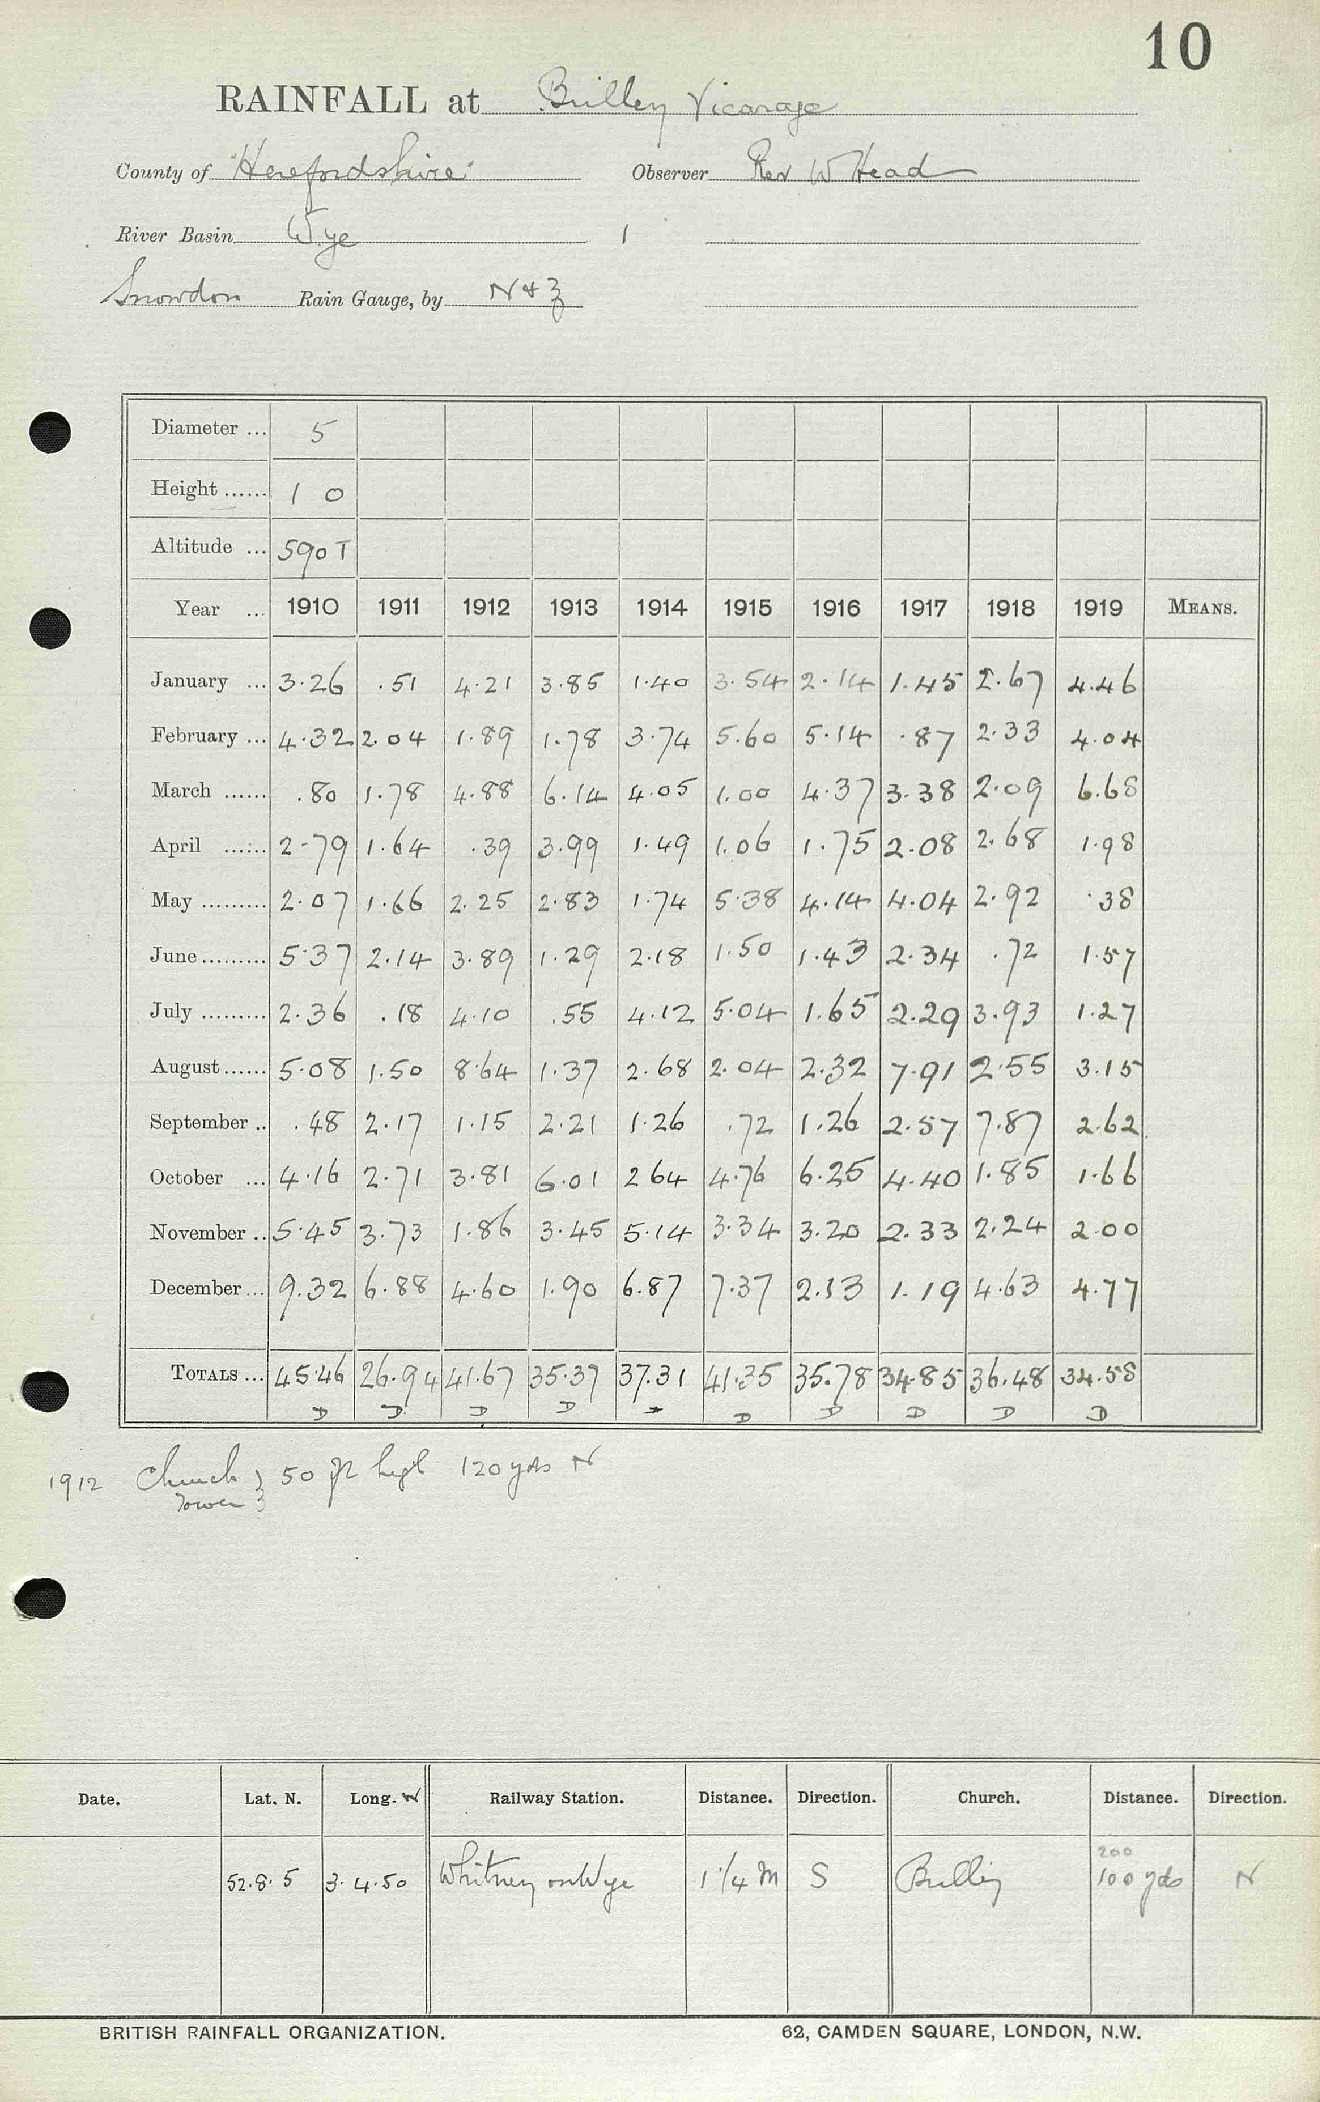 10
RAINFALL at Brilley Vicarage
County of Herefordshire Observer Rev W Head
River Basin Wye 1
Snowdon Rain Gauge, by N & Z
Diameter ... 5
Height ...... 1 0
Altitude ... 590 T
Year ... 1910 1911 1912 1913 1914 1915 1916 1917 1918 1919 MEANS.
January ... 3.26 .51 4.21 3.85 1.40 3.54 2.14 1.45 2.67 4.46
February ... 4.32 2.04 1.89 1.78 3.74 5.60 5.14 .87 2.33 4.04
March ...... .80 1.78 4.88 6.14 4.05 1.00 4.37 3.38 2.09 6.68
April ...... 2.79 1.64 .39 3.99 1.49 1.06 1.75 2.08 2.68 1.98
May ......... 2.07 1.66 2.25 2.83 1.74 5.38 4.14 4.04 2.92 .38
June ......... 5.37 2.14 3.89 1.29 2.18 1.50 1.43 2.34 .72 1.57
July ......... 2.36 .18 4.10 .55 4.12 5.04 1.65 2.29 3.93 1.27
August ...... 5.08 1.50 8.64 1.37 2.68 2.04 2.32 7.91 2.55 3.15
September .. .48 2.17 1.15 2.21 1.26 .72 1.26 2.57 7.87 2.62
October ... 4.16 2.71 3.81 6.01 2 64 4.76 6.25 4.40 1.85 1.66
November .. 5.45 3.73 1.86 3.45 5.14 3.34 3.20 2.33 2.24 2.00
December ... 9.32 6.88 4.60 1.90 6.87 7.37 2.13 1.19 4.63 4.77
TOTALS ... 45.46 26.94 41.67 35.37 37.31 41.35 35.78 34.85 36.48 34.58
D D D D D D D D D
1912 Church } 50 ft high 120 yds N
Tower }
Date. Lat. N. Long. W Railway Station. Distance. Direction. Church. Distance. Direction.
200
52.8.5 3.4.50 Whitney on Wye 1 1/4 M S Brilley 100 yds N
BRITISH RAINFALL ORGANIZATION. 62, CAMDEN SQUARE, LONDON, N.W.